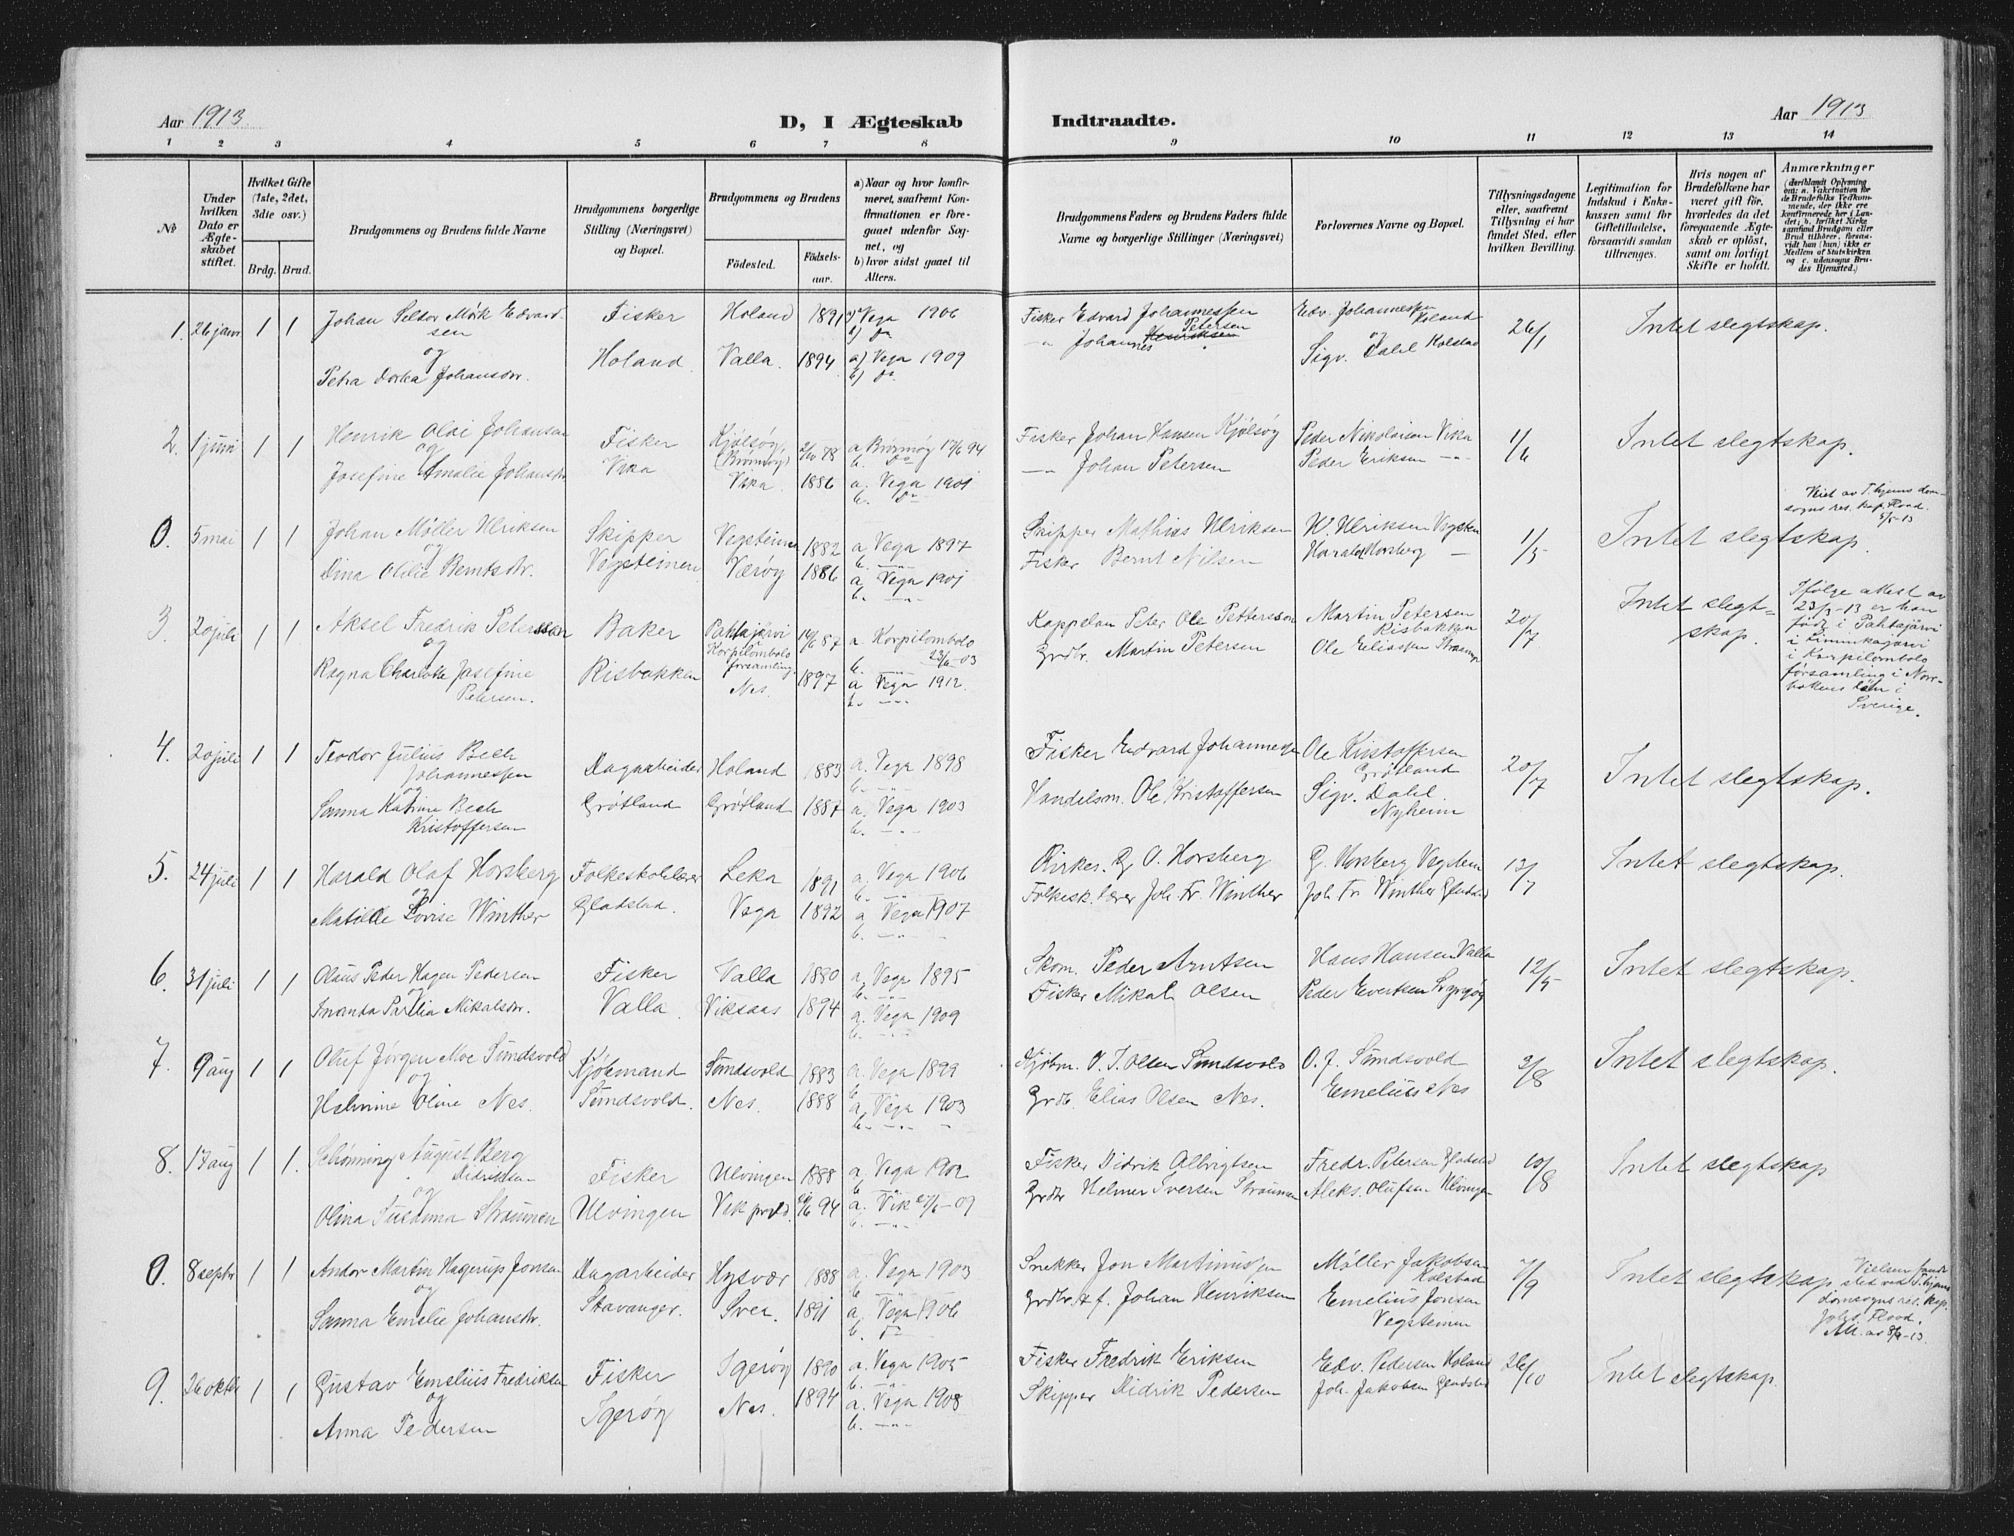 Aar 1913
D, I Ægteskab
Indtraadte.
Aar 1913
1 2 3 4 5 6 7 8 9 10 11 12 13 14
No
Under hvilken Dato er Ægteskabet stiftet.
Hvilket Gifte (1ste, 2det, 3die osv.)
Brdg. Brud.
Brudgommens og Brudens fulde Navne
Brudgommens borgerlige Stilling (Næringsvei) og Bopæl.
Brudgommens og Brudens
Fødested.
Fødselsaar.
a) Naar og hvor konfirmeret, saafremt Konfirmationen er foregaaet udenfor Sognet, og
b) hvor sidst gaaet til Alters.
Brudgommens Faders og Brudens Faders fulde Navne og borgerlige Stillinger (Næringsvei)
Forlovernes Navne og Bopæl.
Tillysningsdagene eller, saafremt Tillysning ei har fundet Sted, efter hvilken Bevilling.
Legitimation for Indskud i Enkekassen samt for Giftetilladelse, forsaavidt saadan tiltrænges.
Hvis nogen af Brudefolkene har været gift før, hvorledes da det foregaaende Ægteskab er opløst, samt om lovligt Skifte er holdt.
Anmærkninger
(deriblandt Oplysning om: a. Vakcination for de Brudefolks Vedkommende, der ikke ere konfirmerede her i Landet; b. hvilket Kirkesamfund Brudgom eller Brud tilhører, forsaavidt han (hun) ikke er Medlem af Statskirken og c. udensogns Brudes Hjemsted.)
1. 26 janr 1 1 Johan Selmer Mørk Edvardsen Fisker Holand 1891 a) Vega 1906 Fisker Edvard Johannessen Edv. Johannessen Holand 26/1 Intet slegtskap.
og b) do " Johannes Henriksen Petersen og
Petra Dorka Johansdtr. Holand Valla. 1894 a) Vega 1909 Sigv. Dahl Kolstad
b) do
2. 1 juni 1 1 Henrik Olai Johansen Fisker Kjølsøy (Brønnøy) 78 a. Brønnøy 17/6 94 Fisker Johan Hansen Kjølsøy Peder Nikolaisen Vika 1/6 Intet slegtskap.
og b. do
Josefine Amalie Johansdtr Vika Vika 1886 a. Vega 1901 " Johan Petersen Peder Eriksen "
b. do
0. 5 mai 1 1 Johan Møller Ulriksen Skipper Vegsteinen 1882 a. Vega 1897 Skipper Mathias Ulriksen W. Ulriksen Vegsten 1/5 Intet slegtskap. Viet av T.hjems domsogns res. kap. Flood. 5/5-13
og b. "
Dina Olilie Berntsdtr. Vegsteinen Værøy 1886 a. Vega 1901 Fisker Bernt Nilsen Harald Horsberg "
b. "
3. 20 juli 1 1 Aksel Fredrik Petersson Baker Pahtajärvi Korpilombolo forsamling 14/6 87 a. Korpilombolo 23/6-03 Kappelan Peter Ole Pettersson Martin Petersen Risbakken 20/7 Intet slegtskap. Ifølge attest av 23/3-13 er han født i Pahtajärvi i Liminkajärvi i Korpilombolo församling i Norrbottens län i Sverige.
og b. "
Ragna Charlotte Josefine Petersen. Risbakken Nes. 1897 a. Vega 1912. Grdbr. Martin Petersen Ole Eliassen
b. "
4. 20 juli 1 1 Teodor Julius Bech Johannessen Dagarbeider Holand 1883 a. Vega 1898 Fisker Edvard Johannessen Ole Kristoffersen Grøtland 20/7 Intet slegtskap.
og b. "
Sanna Katrine Bech Kristoffersen Grøtland Grøtland 1887 a. Vega 1903 Handelsm. Ole Kristoffersen Sigv. Dahl Nyheim
b. "
5. 24 juli 1 1 Harald Olaf Horsberg Folkeskolelærer Leka 1891 a. Vega 1906 Kirkes. G. O. Horsberg G. Horsberg Vegsten 13/7 Intet slegtskap.
og b. "
Matilde Lovise Winther Gladstad. Vega 1892 a. Vega 1907 Folkesk.lærer Joh. Fr. Winther Joh. Fr. Winther Gladstad
b. "
6. 31 juli 1 1 Olaus Peder Hagen Pedersen Fisker Valla 1880 a. Vega 1895 Skom. Peder Arntsen Hans Hansen Valla 12/5 Intet slegtskap.
og b. "
Inanda Parelia Mikalsdtr. Valla. Viksaas 1894 a. Vega 1909 Fisker Mikal Olsen Peder Evertsen
b. "
7. 9 aug 1 1 Oluf Jørgen Moe Sundsvold Kjøbmand Sundsvold 1883 a. Vega 1899 Kjøbm. O. J. Olsen Sundsvold O. J. Sundsvold 3/8 Intet slegtskap.
og b. "
Halvine Oline Nes. Sundsvold. Nes. 1888 a. Vega 1903 Grdb. Elias Olsen Nes. Emelius Nes
b. "
8. 17 aug 1 1. Schønning August Berg Didriksen Fisker Ulvingen 1888 a. Vega 1902 Fisker Didrik Albrigtsen Fredr. Petersen Gladstad 10/8 Intet slegtskap.
og b. "
Olina Susanna Straumen Ulvingen Vik prgld. 94 a. Vik 27/6-09 Grdbr Helmer Iversen Straumen Aleks. Olufsen Ulvingen
b. "
0. 8 septr 1 1 Andor Martin Hagerup Jonsen Dagarbeider Hysvær 1888 a. Vega 1903 Snekker Jon Martinussen Møller Jakobsen Kolstad 7/9 Intet slegtskap. Vielsen fandt sted ved T.hjems domsogns res. kap. Johs. Flood. Att. av 8/9-13
og b. "
Sanna Emelie Johansdtr. Stavanger. Svea. 1891 a. Vega 1906 Grdbr. s.f. Johan Henriksen Emelius Jonsen Vegsteinen
b. do
9. 26 oktbr 1 1 Gustav Emelius Fredriksen Fisker Igerøy 1890 a. Vega 1905 Fisker Fredrik Eriksen Edv. Pedersen Holand 26/10 Intet slegtskap.
og b. "
Anna Pedersen Igerøy Nes. 1894 a. Vega 1908 Skipper Didrik Pedersen Joh. Jakobsen Gladstad
b. "